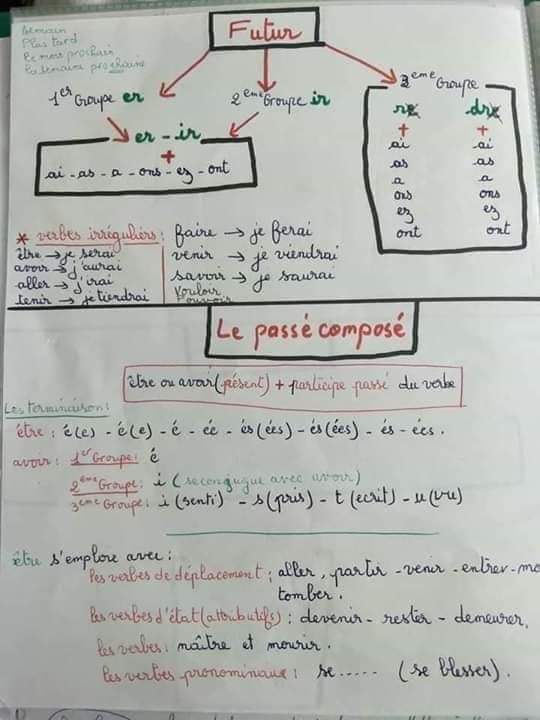 Demain
Plus tard
Le mois prochain
La semaine prochaine
Futur
1er Groupe er
2eme Groupe ir
3eme Groupe
er - ir
+
ai - as - a - ons - ez - ont
re dre
+ +
ai ai
as as
a a
ons ons
ez ez
ont ont
* verbes irréguliérs :
être → je serai
avoir → j'aurai
aller → j'irai
tenir → je tiendrai
faire → je ferai
venir → je viendrai
savoir → je saurai
vouloir
Pouvoir
Le passé composé
être ou avoir (présent) + participe passé du verbe
Les terminaison :
être : é(e) - é(e) - é - ée - és(ées) - és(ées) - és - ées.
avoir : 1er Groupe : é
2eme Groupe : i (se conjugue avec avoir)
3eme Groupe : i (senti) - s (pris) - t (ecrit) - u (vu)
être s'emploie avec :
les verbes de déplacement ; aller, partir - venir - entrer - mo
tomber.
les verbes d'état (attributifs) : devenir - rester - demeurer,
les verbes : naître et mourir.
les verbes pronominaux : se ..... (se blesser).